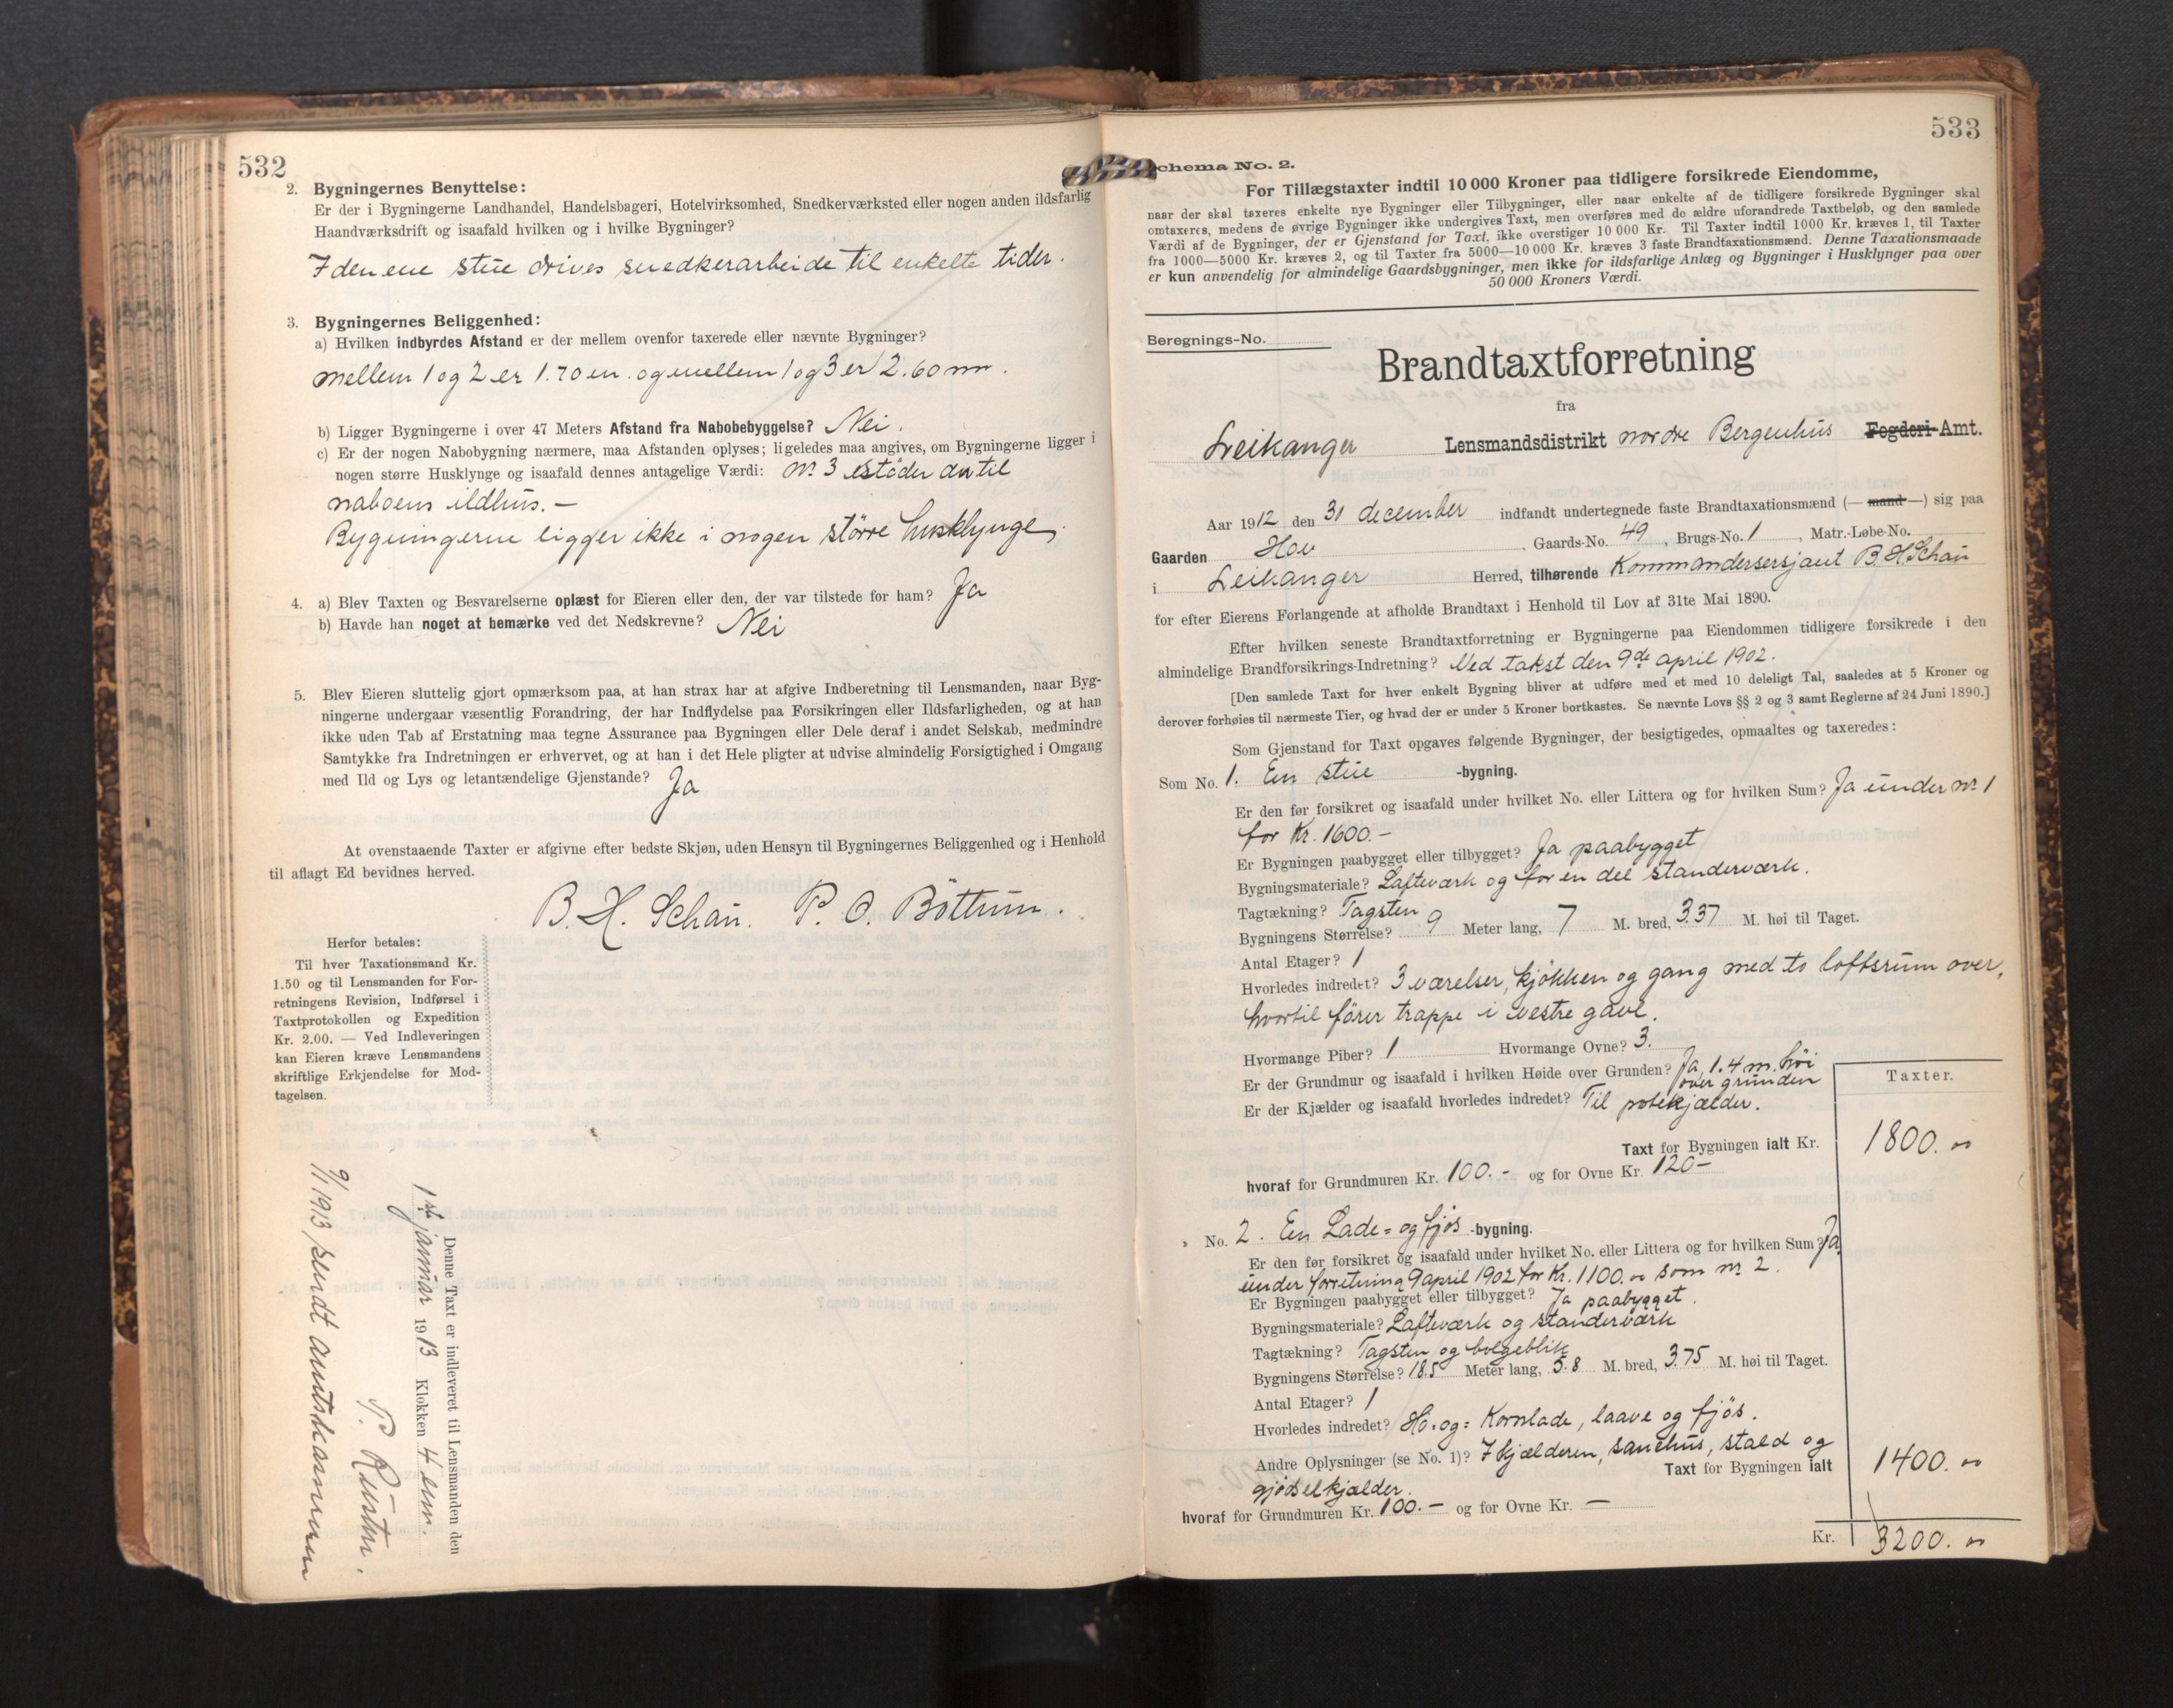 532
2. Bygningernes Benyttelse:
Er der i Bygningerne Landhandel, Handelsbageri, Hotelvirksomhed, Snedkerværksted eller nogen anden ildsfarlig
Haandværksdrift og isaafald hvilken og i hvilke Bygninger?
I den ene stue drives snedkerarbeide til enkelte tider.
3. Bygningernes Beliggenhed:
a) Hvilken indbyrdes Afstand er der mellem ovenfor taxerede eller nævnte Bygninger?
Mellem 1 og 2 er 1.70 m. og mellem 1 og 3 er 2.60 m.
b) Ligger Bygningerne i over 47 Meters Afstand fra Nabobebyggelse? Nei.
c) Er der nogen Nabobygning nærmere, maa Afstanden oplyses; ligeledes maa angives, om Bygningerne ligger i
nogen større Husklynge og isaafald dennes antagelige Værdi: Nr. 3 støder til
naboens ildhus. —
Bygningerne ligger ikke i nogen större husklynge.
4. a) Blev Taxten og Besvarelserne oplæst for Eieren eller den, der var tilstede for ham? Ja
b) Havde han noget at bemærke ved det Nedskrevne? Nei
5. Blev Eieren sluttelig gjort opmærksom paa, at han strax har at afgive Indberetning til Lensmanden, naar Byg-
ningerne undergaar væsentlig Forandring, der har Indflydelse paa Forsikringen eller Ildsfarligheden, og at han
ikke uden Tab af Erstatning maa tegne Assurance paa Bygningen eller Dele deraf i andet Selskab, medmindre
Samtykke fra Indretningen er erhvervet, og at han i det Hele pligter at udvise almindelig Forsigtighed i Omgang
med Ild og Lys og letantændelige Gjenstande? Ja
At ovenstaaende Taxter er afgivne efter bedste Skjøn, uden Hensyn til Bygningernes Beliggenhed og i Henhold
til aflagt Ed bevidnes herved.
B. H. Schau. P. O. Böttum.
Herfor betales:
Til hver Taxationsmand Kr.
1.50 og til Lensmanden for For-
retningens Revision, Indførsel i
Taxtprotokollen og Expedition
Kr. 2.00. — Ved Indleveringen
kan Eieren kræve Lensmandens
skriftlige Erkjendelse for Mod-
tagelsen.
Denne Taxt er indleveret til Lensmanden den
1ste januar 1913 Klokken 4 em.
P. Rusten.
9/1 1913 sendt amtskammeren
533
Schema No. 2.
For Tillægstaxter indtil 10 000 Kroner paa tidligere forsikrede Eiendomme,
naar der skal taxeres enkelte nye Bygninger eller Tilbygninger, eller naar enkelte af de tidligere forsikrede Bygninger skal
omtaxeres, medens de øvrige Bygninger ikke undergives Taxt, men overføres med de ældre uforandrede Taxtbeløb, og den samlede
Værdi af de Bygninger, der er Gjenstand for Taxt, ikke overstiger 10 000 Kr. Til Taxter indtil 1000 Kr. kræves 1, til Taxter
fra 1000—5000 Kr. kræves 2, og til Taxter fra 5000—10 000 Kr. kræves 3 faste Brandtaxationsmænd. Denne Taxationsmaade
er kun anvendelig for almindelige Gaardsbygninger, men ikke for ildsfarlige Anlæg og Bygninger i Husklynger paa over
50 000 Kroners Værdi.
Beregnings-No.
Brandtaxtforretning
fra
Leikanger Lensmandsdistrikt nordre Bergenhus Fogderi-Amt.
Aar 1912 den 31 december indfandt undertegnede faste Brandtaxationsmænd (— mand —) sig paa
Gaarden Hov, Gaards-No. 49, Brugs-No. 1, Matr.-Løbe-No.
i Leikanger Herred, tilhørende Kommandersersjant B. H. Schau
for efter Eierens Forlangende at afholde Brandtaxt i Henhold til Lov af 31te Mai 1890.
Efter hvilken seneste Brandtaxtforretning er Bygningerne paa Eiendommen tidligere forsikrede i den
almindelige Brandforsikrings-Indretning? Ved takst den 9de april 1902.
[Den samlede Taxt for hver enkelt Bygning bliver at udføre med et med 10 deleligt Tal, saaledes at 5 Kroner og
derover forhøies til nærmeste Tier, og hvad der er under 5 Kroner bortkastes. Se nævnte Lovs §§ 2 og 3 samt Reglerne af 24 Juni 1890.]
Som Gjenstand for Taxt opgaves følgende Bygninger, der besigtigedes, opmaaltes og taxeredes:
Som No. 1. En stue -bygning.
Er den før forsikret og isaafald under hvilket No. eller Littera og for hvilken Sum? Ja under nr. 1
for Kr. 1600.—
Er Bygningen paabygget eller tilbygget? Ja paabygget
Bygningsmateriale? Lafteværk og for en del standerværk.
Tagtækning? Tagsten
Bygningens Størrelse? 9 Meter lang, 7 M. bred, 3.37 M. høi til Taget.
Antal Etager? 1
Hvorledes indredet? 3 værelser, kjökken og gang med to loftsrum over,
hvortil förer trappe i vestre gavl.
Hvormange Piber? 1 Hvormange Ovne? 3.
Er der Grundmur og isaafald i hvilken Høide over Grunden? Ja, 1.4 m. höi
over grunden
Er der Kjælder og isaafald hvorledes indredet? Til potetkjælder.
Taxter.
Taxt for Bygningen ialt Kr. 1800.00
hvoraf for Grundmuren Kr. 100.— og for Ovne Kr. 120—
" No. 2. En Lade= og fjös -bygning.
Er den før forsikret og isaafald under hvilket No. eller Littera og for hvilken Sum? Ja
under forretning 9 april 1902 for Kr. 1100.00 som nr. 2.
Er Bygningen paabygget eller tilbygget? Ja paabygget.
Bygningsmateriale? Lafteværk og standerværk
Tagtækning? Tagsten og bølgeblik
Bygningens Størrelse? 18.5 Meter lang, 5.8 M. bred, 3.75 M. høi til Taget.
Antal Etager? 1
Hvorledes indredet? Hö- og= Kornlade, laave og fjös.
Andre Oplysninger (se No. 1)? I kjælderen, sauehus, stald og
gjödselkjælder.
Taxt for Bygningen ialt 1400.00
hvoraf for Grundmuren Kr. 100.— og for Ovne Kr. —
Kr. 3200.00